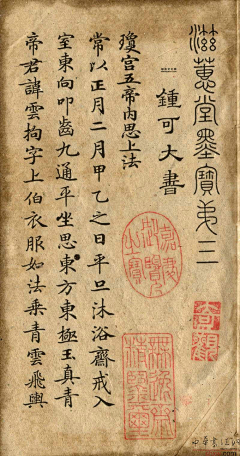 滋蕙堂墨寶第三
鍾可大書
瓊宮五帝內思上法
常以正月二月甲乙之日平旦沐浴齋戒入
室東向叩齒九通平坐思東方東極玉真青
帝君諱雲拘字上伯衣服如法乘青雲飛輿